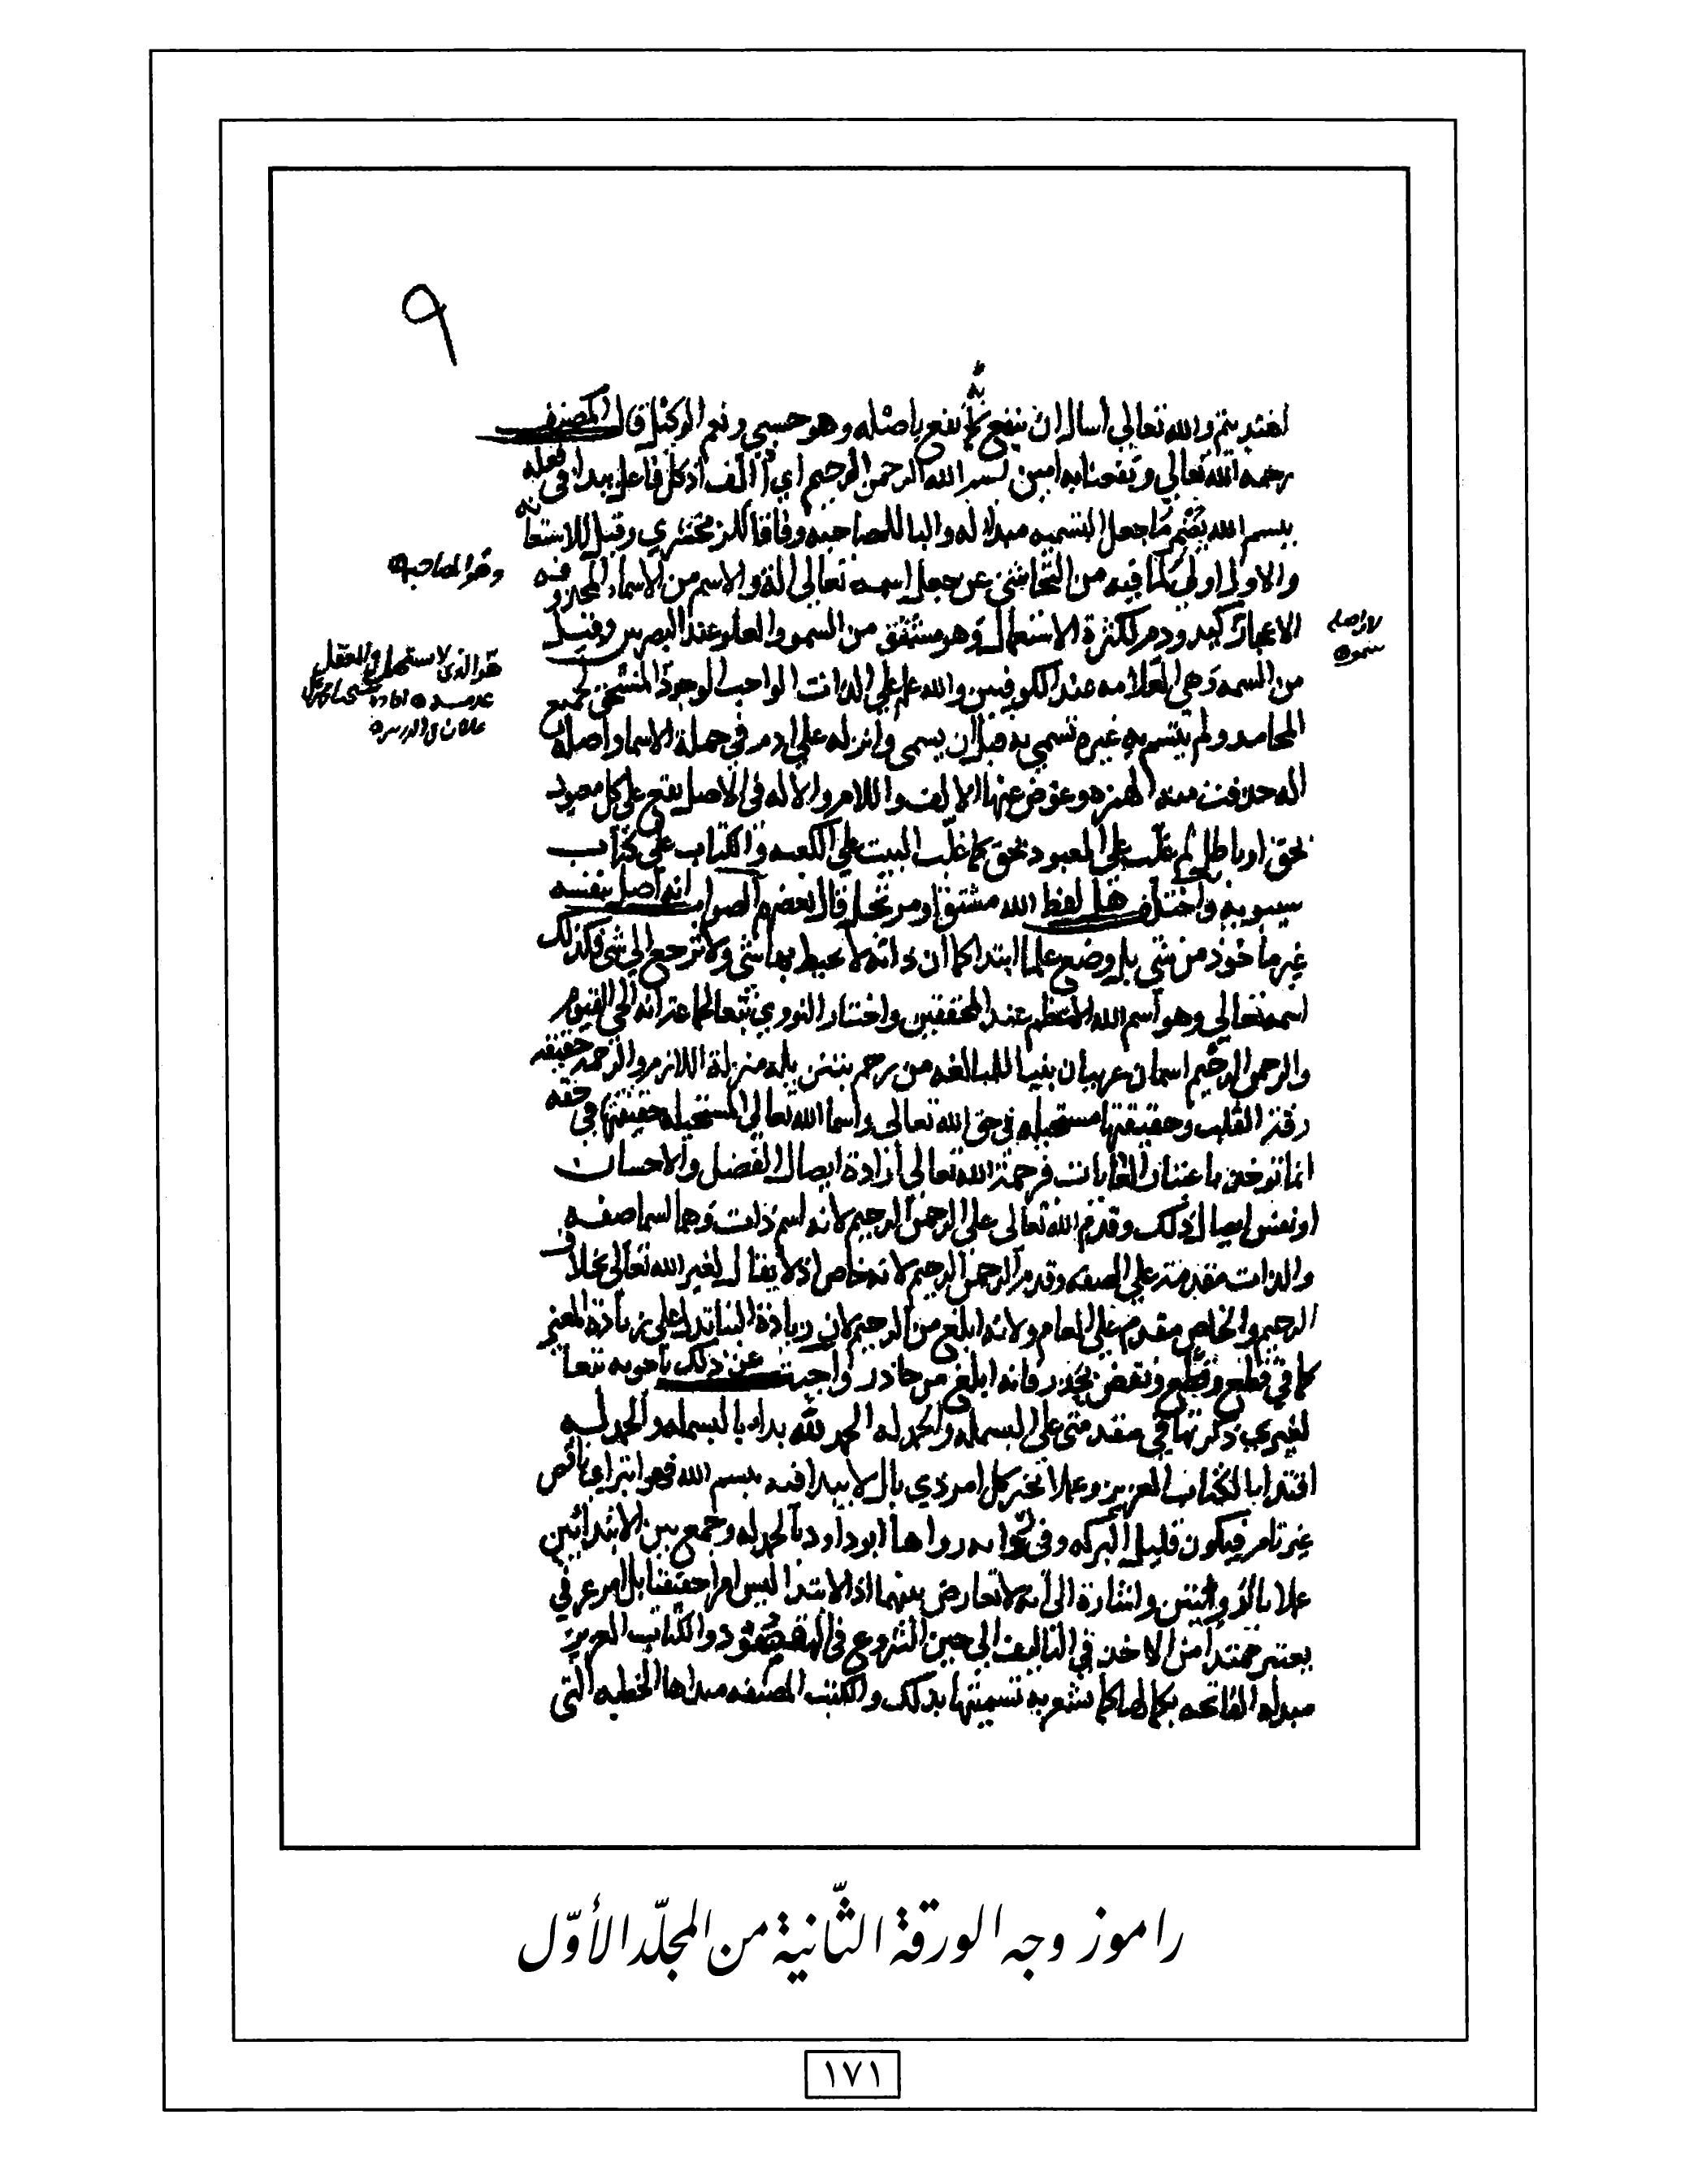 ٩
والله تعالى أسال ان ينفع به كما نفع باصله وهو حسبي ونعم الوكيل قال المصنف
رحمه الله تعالى ونفعنا به امين بسم الله الرحمن الرحيم اي أألف اذ كل فاعل يبدا في فعله
ببسم الله يضمر ما جعل التسميه مبداله والبا للمصاحبه وفاقا للزمخشري وقيل للاستعانه
والاولى اولى لما فيه من التحاشي عن جعل اسمه تعالى الة والاسم من الاسماء المحذوفه
وهو المصاحبه
الاعجاز كيد ودم لكثرة الاستعمال وهو مشتق من السمو والعلو عند البصريين وقيل
لان اصله
سمو
من السمه وهي العلامه عند الكوفيين والله علم على الذات الواجب الوجود المستحق لجميع
المحامد ولم يتسم به غيره تسمى به قبل ان يسمى وانزله على ادم في جملة الاسما واصله
اله حذفت منه الهمزه وعوض عنها الالف واللام والاله في الاصل يقع على كل معبود
بحق او باطل ثم غلب على المعبود بحق كما غلب البيت على الكعبه والكتاب على كتاب
سيبويه واختلف هل لفظ الله مشتق او مرتجل قال بعضهم الصواب انه اصل بنفسه
غير ماخوذ من شي بل وضع علما ابتدا كما ان ذاته لا يحيط بها شي ولا ترجع الى شي فكذلك
اسمه تعالى وهو اسم الله الاعظم عند المحققين واختار النووي تبعا لجماعة انه الحي القيوم
والرحمن الرحيم اسمان عربيان بنيا للمبالغه من رحم بتنزيله منزلة اللازم والرحمة حقيقة
رقة القلب وحقيقتها مستحيله في حق الله تعالى واسما الله تعالى المستحيله حقيقتها في حقه
انما توخذ باعتبار الغايات فرحمة الله تعالى ارادة ايصال الفضل والاحسان
او نفس ايصال ذلك وقدم الله تعالى على الرحمن الرحيم لانه اسم ذات وهما اسما صفه
والذات مقدمة على الصفه وقدم الرحمن على الرحيم لانه خاص اذ لا يقال لغير الله تعالى بخلاف
الرحيم والخاص مقدم على العام ولانه ابلغ من الرحيم لان زيادة البنا تدل على زيادة المعنى
كما في قطع وقطع ونقض بحذر فانه ابلغ من حاذر واجيب عن ذلك باجوبه تبعا
لغيري ذكرتها في مقدمتي على البسمله والحمدله الحمد لله بدا بالبسمله والحمدله
اقتدا بالكتاب العزيز وعملا بخبر كل امر ذي بال لا يبدا فيه ببسم الله فهو ابتر اي ناقص
غير تام فيكون قليل البركه وفي رواية رواها ابو داود بالحمد لله وجمع بين الابتدائين
عملا بالروايتين واشارة الى انه لا تعارض بينهما اذ الابتدا ليس امرا حقيقيا بل امر عرفي
يعتبر ممتدا من الاخذ في التاليف الى حين الشروع في المقصود والكتاب العزيز
مبداه الفاتحه بكمالها كما يشعر به تسميتها بذلك والكتب المصنفه مبداها الخطبه التي
راموز وجه الورقة الثّانية من المجلّد الأوّل
١٧١